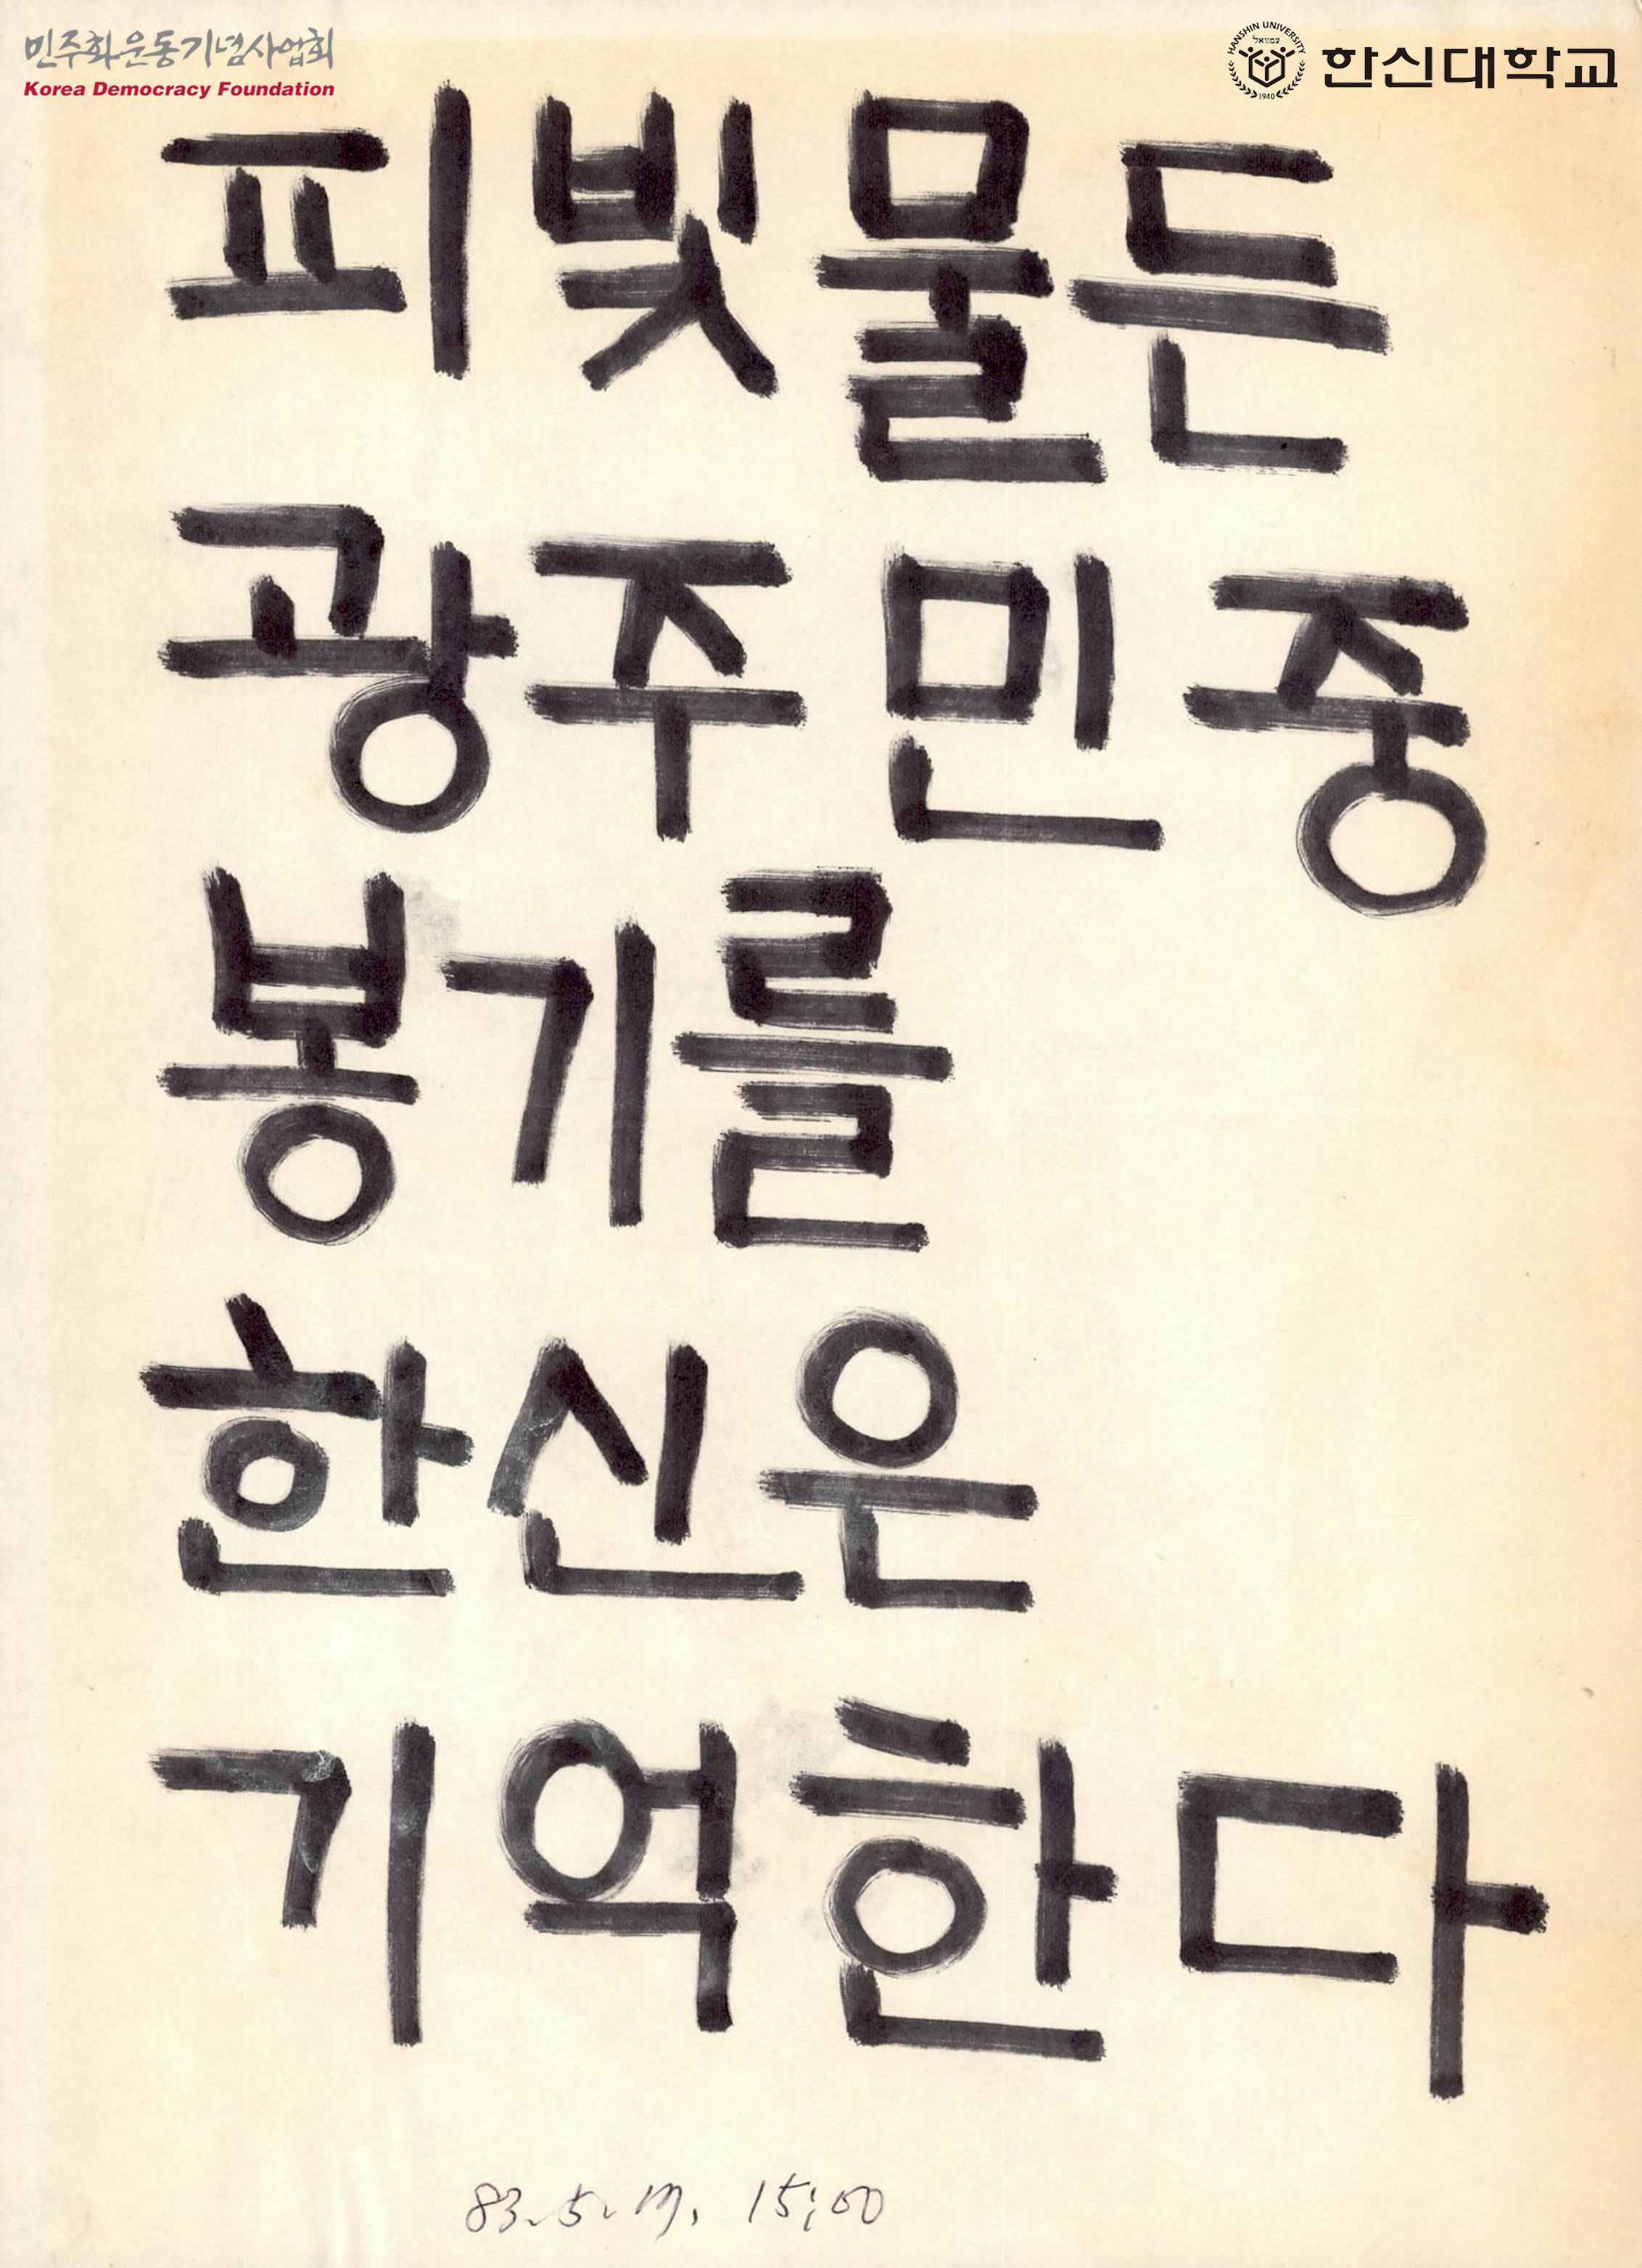 민주화운동기념사업회
Korea Democracy Foundation
HANSHIN UNIVERSITY
1940
한신대학교
피빛 물든
광주 민중
봉기를
한신은
기억한다
83. 5. 17. 15:00